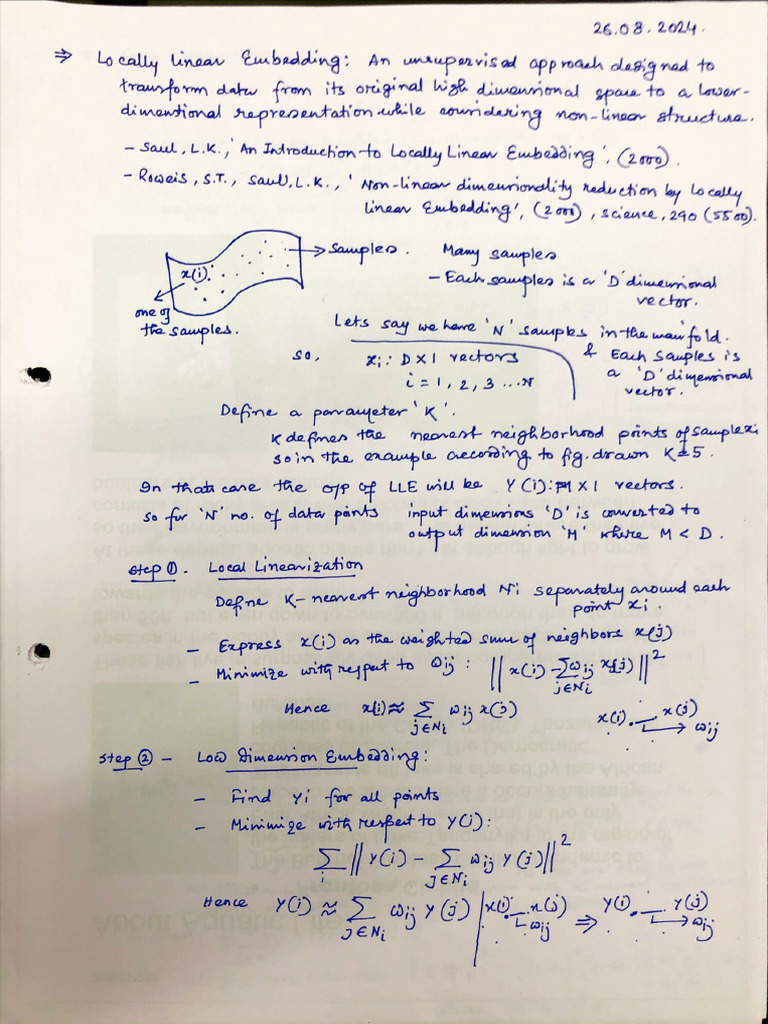 26.08.2024.
⇒ Locally linear Embedding: An unsupervised approach designed to
transform data from its original high dimensional space to a lower-
dimentional representation while considering non-linear structure.
- Saul, L.K., 'An Introduction to Locally Linear Embedding', (2000).
- Roweis, S.T., Saul, L.K., 'Non-linear dimensionality reduction by locally
linear Embedding', (2000), science, 290 (5500).
x(i)
→ Samples. Many samples
- Each samples is a 'D' dimensional
vector.
one of
the samples.
Lets say we have 'N' samples in the manifold.
so, xi : D×1 vectors & Each samples is
i = 1, 2, 3 ... N a 'D' dimensional
vector.
Define a parameter 'K'.
K defines the nearest neighborhood points of sample xi
so in the example according to fig. drawn K=5.
In that case the o/p of LLE will be Y(i): M×1 vectors.
so for 'N' no. of data points input dimensions 'D' is converted to
output dimension 'M' where M < D.
Step ①. Local Linearization
Define K-nearest neighborhood Ni separately around each
point xi.
- Express x(i) as the weighted sum of neighbors x(j)
- Minimize with respect to ωij : || x(i) - Σ_{j∈Ni} ωij x(j) ||²
Hence x(i) ≈ Σ_{j∈Ni} ωij x(j) x(i) x(j) → ωij
Step ② - Low Dimension Embedding:
- Find Yi for all points
- Minimize with respect to Y(i):
Σ_i || Y(i) - Σ_{j∈Ni} ωij Y(j) ||²
Hence Y(i) ≈ Σ_{j∈Ni} ωij Y(j) | x(i) x(j) ωij ⇒ Y(i) Y(j) → ωij